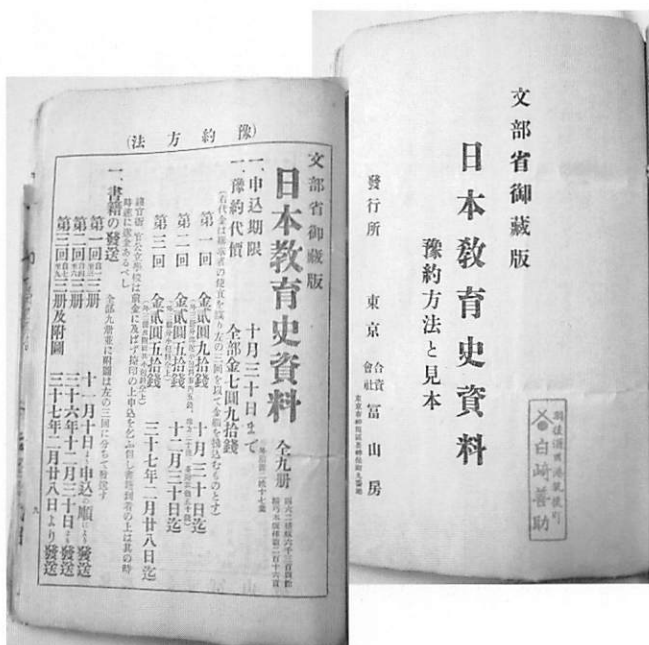 文部省御藏版
日本敎育史資料
豫約方法と見本
發行所　東京　合資會社　冨山房
白崎善助
(豫約方法)
文部省御藏版
日本敎育史資料　全九册
一、申込期限　十月三十日まで
一、豫約代價　全部金七圓九拾錢
第一回　金貳圓九拾錢　十月三十日迄
第二回　金貳圓五拾錢　十二月三十日迄
第三回　金貳圓五拾錢　三十七年二月廿八日迄
一、書籍の發送
第一回　三册　十一月十日より申込の順により發送
第二回　三册　三十六年十二月三十日より發送
第三回　三册及附圖　三十七年二月廿八日より發送